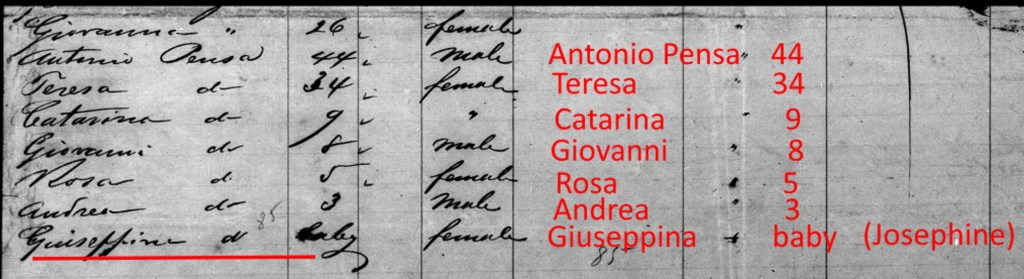 Giovanna " 26 female "
Antonio Pensa 44 male Antonio Pensa " 44
Teresa do 34 female Teresa 34
Catarina do 9 " Catarina 9
Giovanni do 8 male Giovanni " 8
Rosa do 5 female Rosa 5
Andrea do 3 male Andrea 3
85
Giuseppina do baby female Giuseppina baby (Josephine)
85